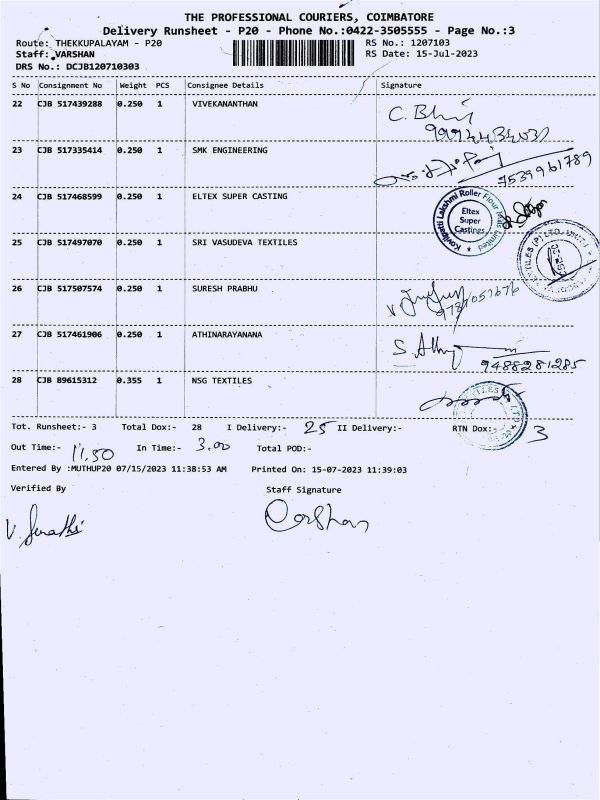 THE PROFESSIONAL COURIERS, COIMBATORE
Delivery Runsheet - P20 - Phone No.:0422-3505555 - Page No.:3
Route: THEKKUPALAYAM - P20 RS No.: 1207103
Staff: VARSHAN RS Date: 15-Jul-2023
DRS No.: DCJB120710303
S No Consignment No Weight PCS Consignee Details Signature
22 CJB 517439288 0.250 1 VIVEKANANTHAN
23 CJB 517335414 0.250 1 SMK ENGINEERING
7539961789
24 CJB 517468599 0.250 1 ELTEX SUPER CASTING
Kovilpatti Lakshmi Roller Flour Mills Limited
Eltex
Super
Castings
25 CJB 517497070 0.250 1 SRI VASUDEVA TEXTILES
26 CJB 517507574 0.250 1 SURESH PRABHU
27 CJB 517461906 0.250 1 ATHINARAYANANA
9488281285
28 CJB 89615312 0.355 1 NSG TEXTILES
Tot. Runsheet:- 3 Total Dox:- 28 I Delivery:- 25 II Delivery:- RTN Dox:- 3
Out Time:- 11.50 In Time:- 3.00 Total POD:-
Entered By :MUTHUP20 07/15/2023 11:38:53 AM Printed On: 15-07-2023 11:39:03
Verified By Staff Signature